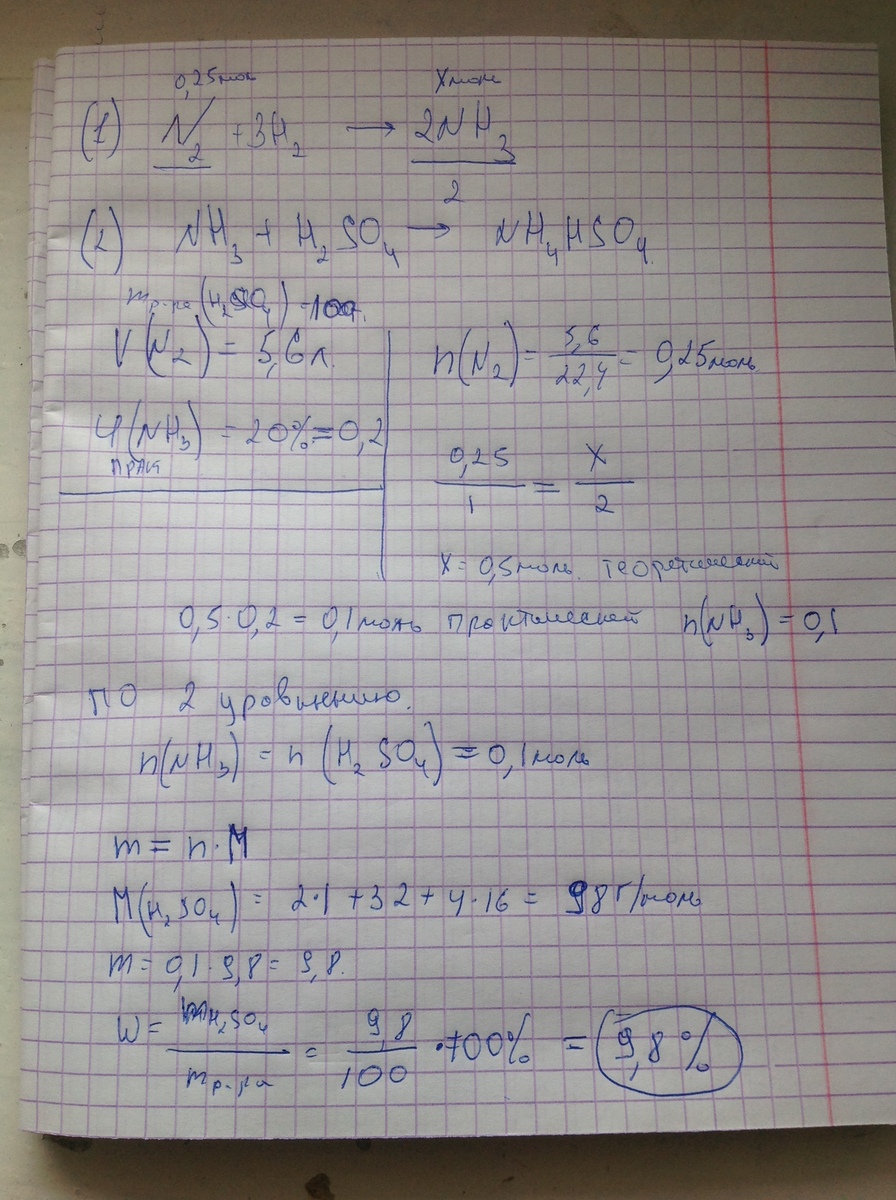 0,25моль Xмоль
(1) N2 + 3H2 → 2NH3
2
(2) NH3 + H2SO4 → NH4HSO4.
mр-ра(H2SO4) = 100г.
V(N2) = 5,6л.
φ(NH3) = 20% = 0,2
прак
n(N2) = 5,6/22,4 = 0,25моль
0,25/1 = X/2
X = 0,5моль. теоретический
0,5·0,2 = 0,1моль практической n(NH3) = 0,1
по 2 уровнению.
n(NH3) = n(H2SO4) = 0,1моль
m = n·M
M(H2SO4) = 2·1 + 32 + 4·16 = 98г/моль
m = 0,1·9,8 = 9,8.
W = mH2SO4/mр-ра = 9,8/100 ·100% = 9,8%